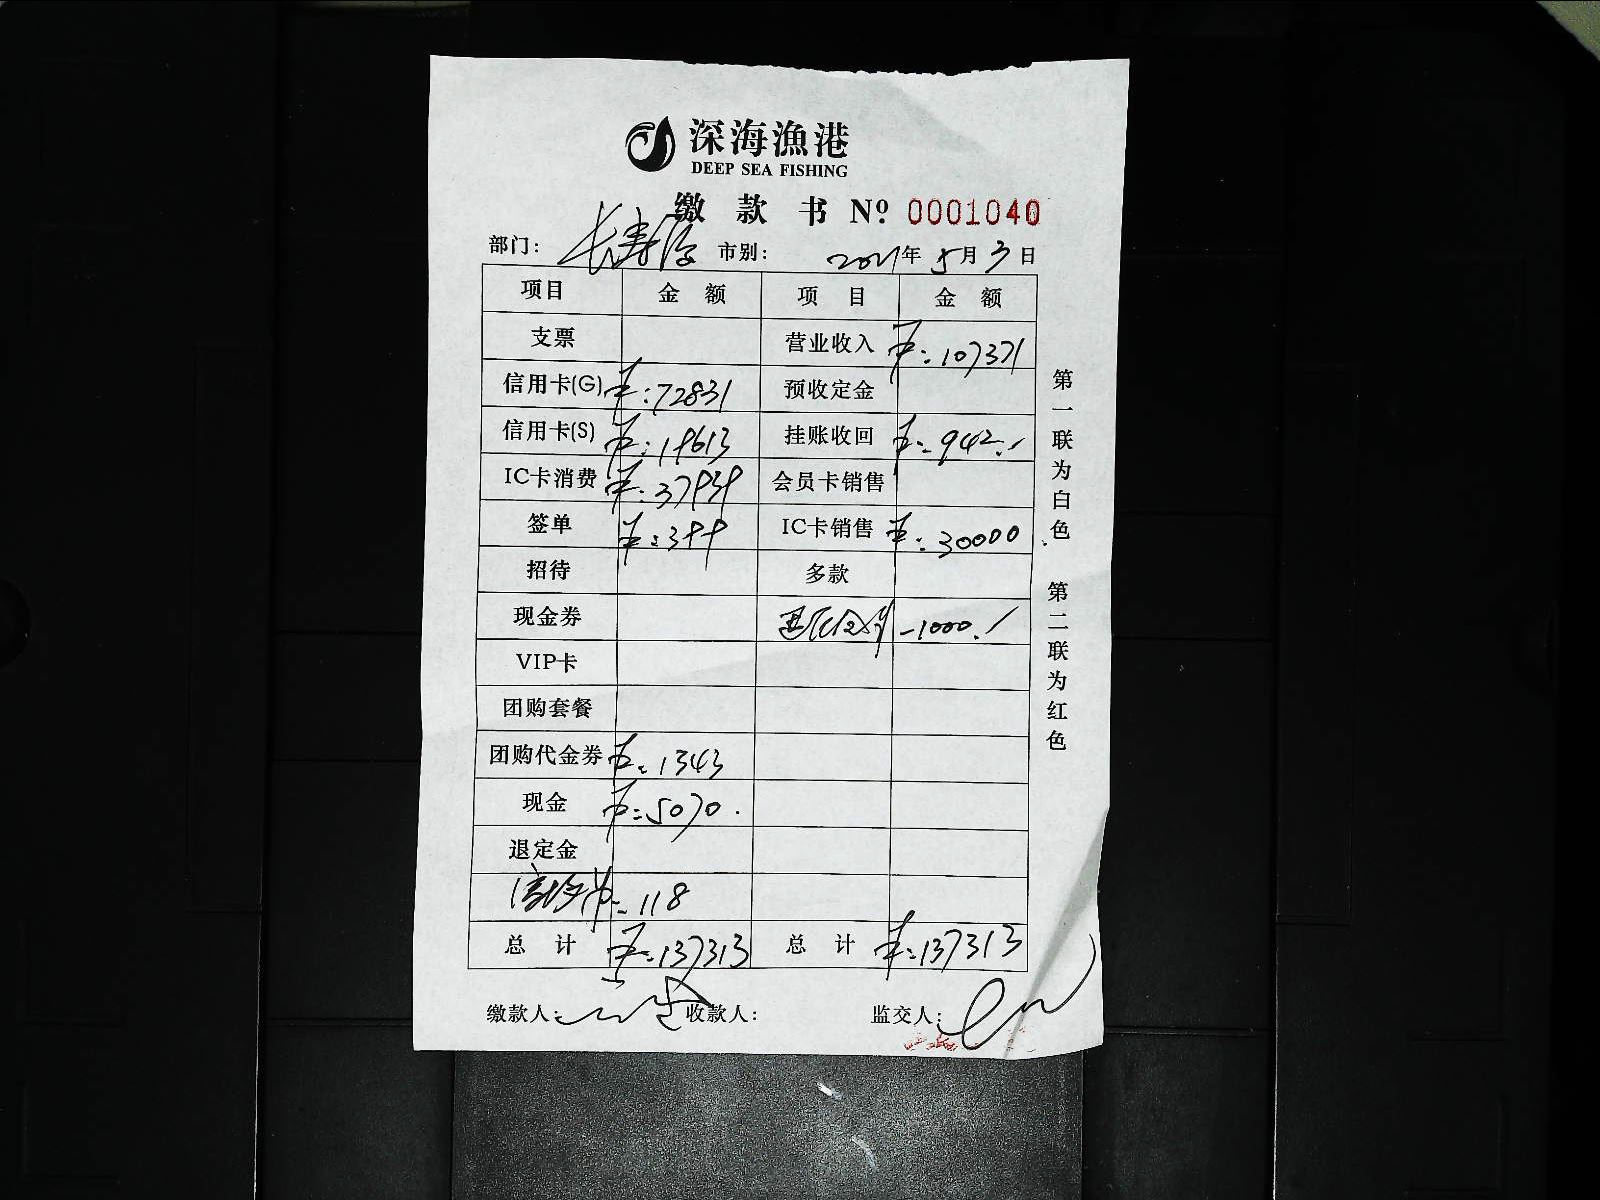 深海漁港
DEEP SEA FISHING
缴 款 书 Nº 0001040
部门: 市别: 2021年5月3日
项目 金 额 项 目 金 额
支票 营业收入 ¥:107371
信用卡(G) ¥:72831 预收定金
信用卡(S) ¥:19613 挂账收回 ¥:942.
IC卡消费 ¥:37939 会员卡销售
签单 ¥:399 IC卡销售 ¥:30000
招待 多款
现金券 -1000.
VIP卡
团购套餐
团购代金券 ¥:1343
现金 ¥:5070.
退定金
118
总 计 ¥:137313 总 计 ¥:137313
缴款人: 收款人: 监交人:
第一联为白色
第二联为红色